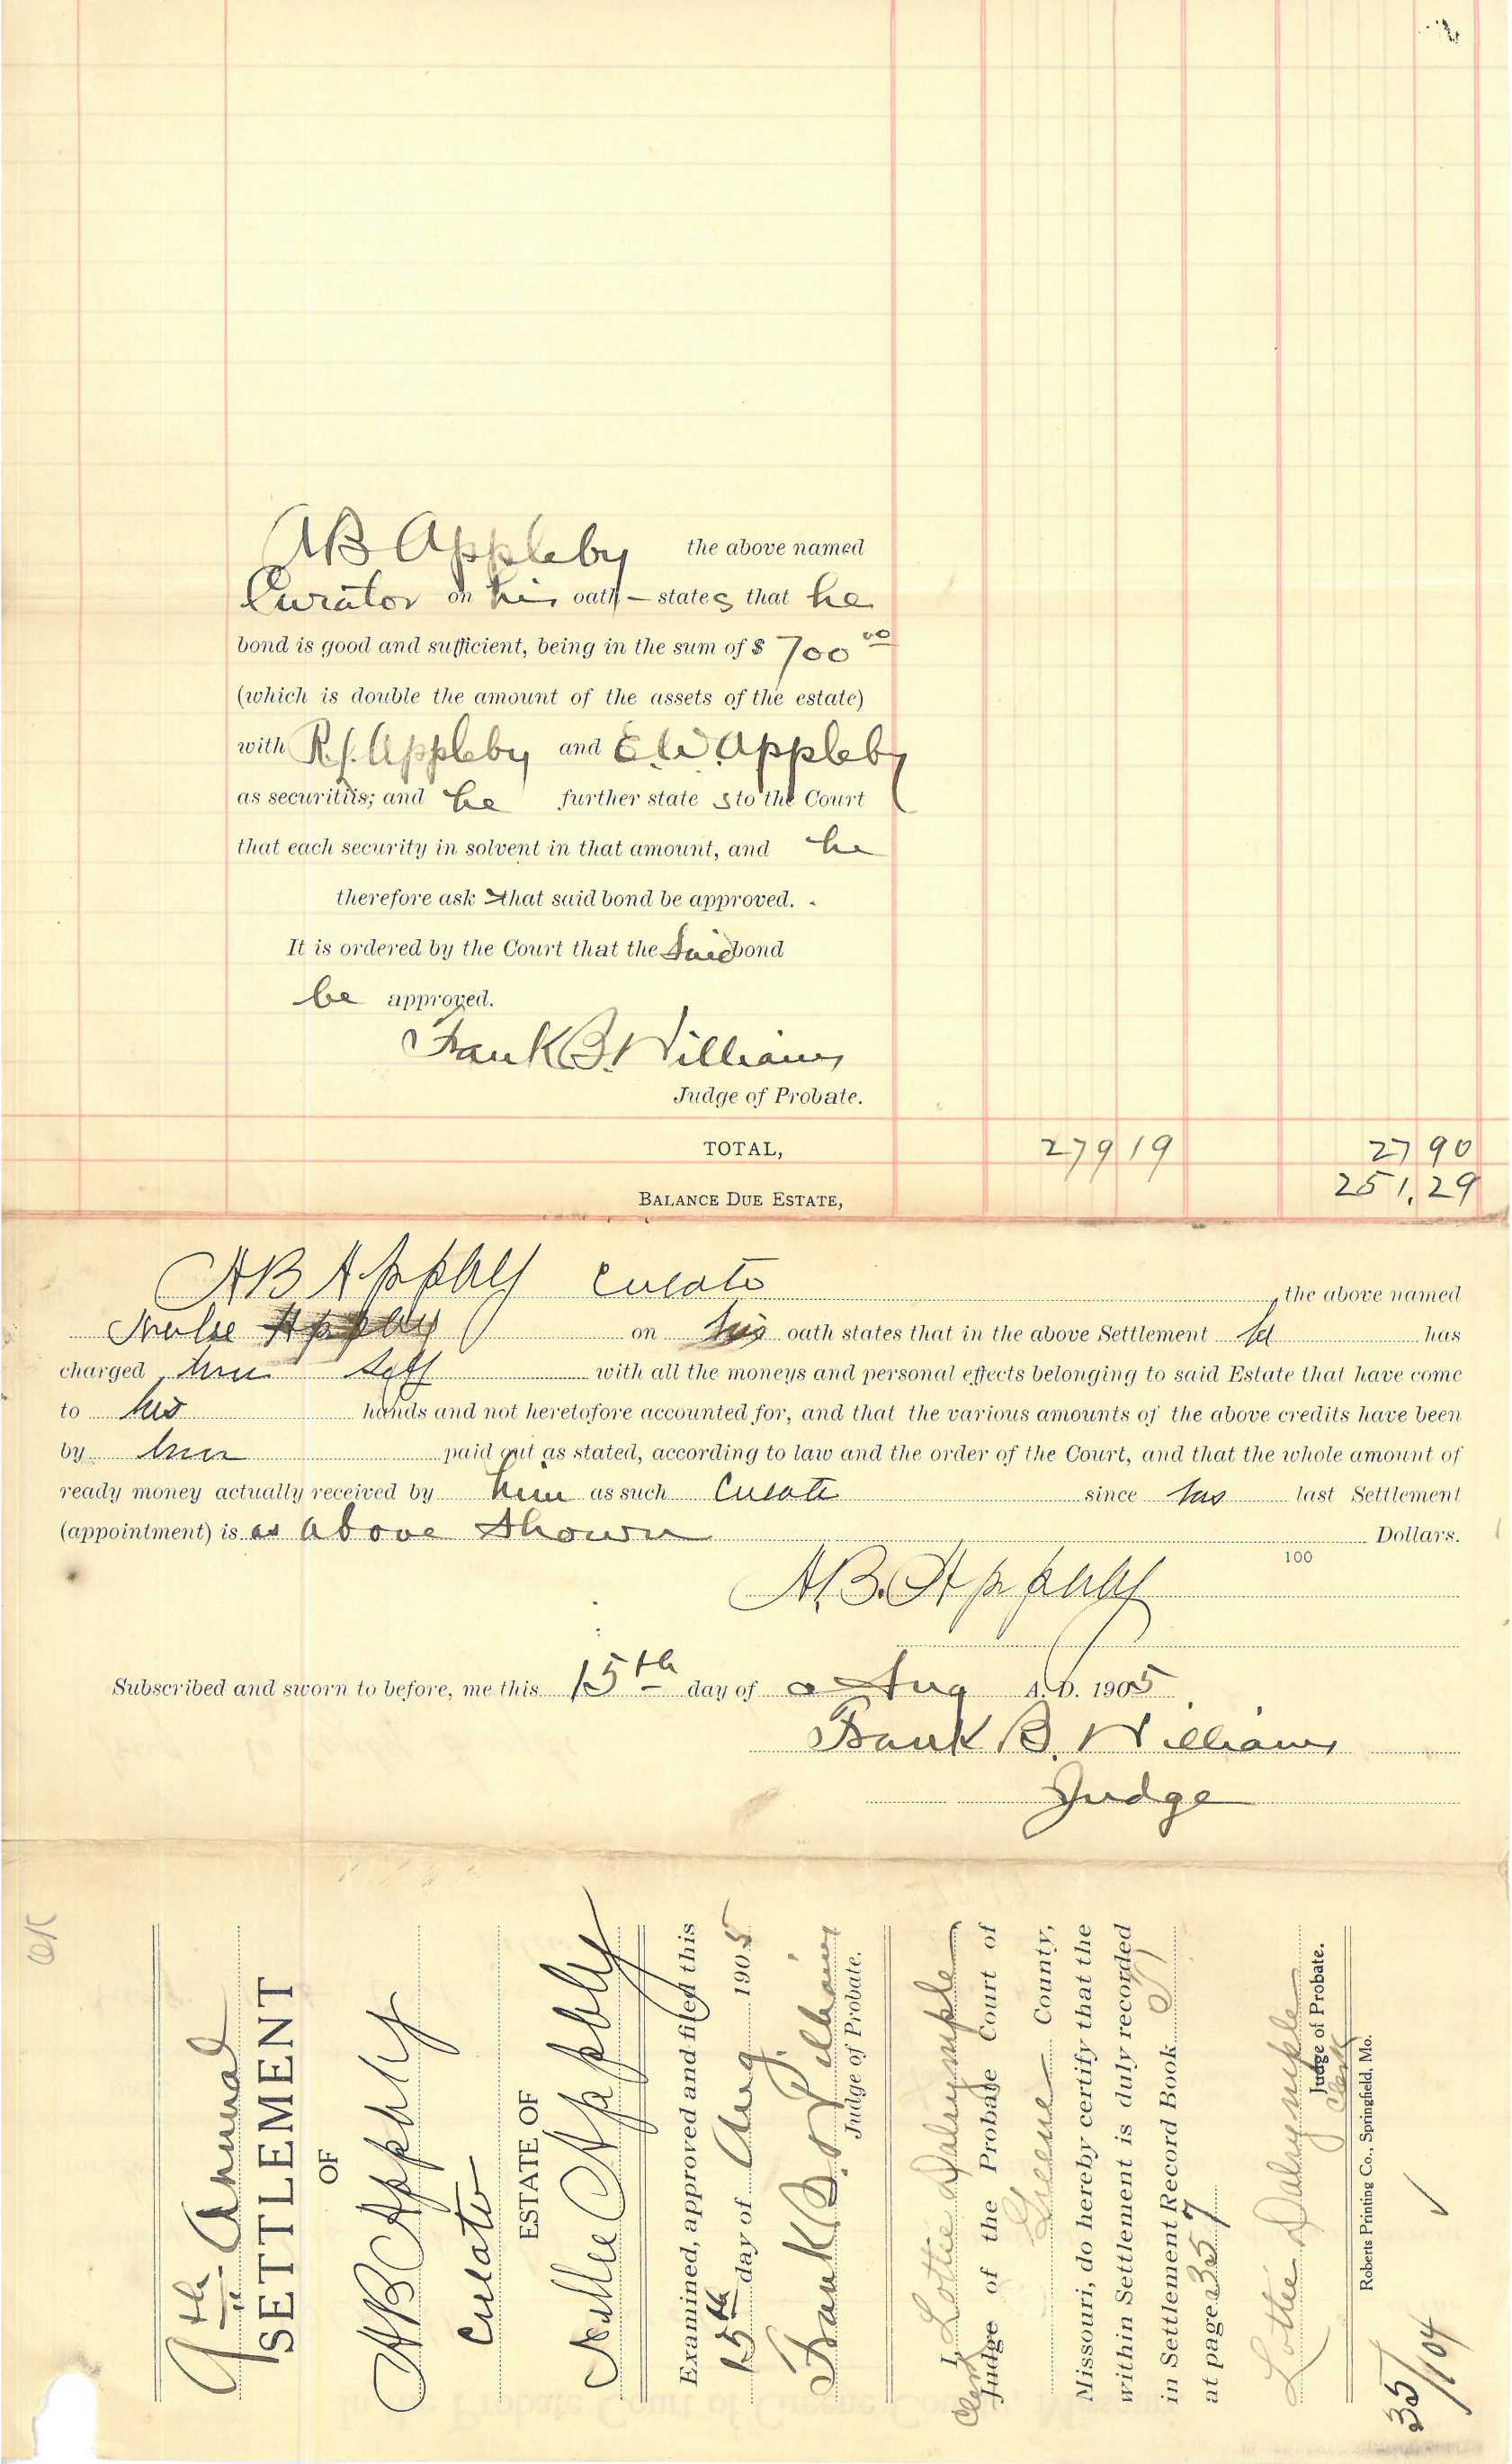 AB Appleby the above named
Curator on his oath – states that he
bond is good and sufficient, being in the sum of $ 700 00
(which is double the amount of the assets of the estate)
with R.J. Appleby and E.W. Appleby
as securities; and he further state s to the Court
that each security in solvent in that amount, and he
therefore ask that said bond be approved.
It is ordered by the Court that the said bond
be approved.
Frank B. Williams
Judge of Probate.
TOTAL, 279 19 27 90
BALANCE DUE ESTATE, 251.29
AB Appleby Curator the above named
on his oath states that in the above Settlement he has
charged him self with all the moneys and personal effects belonging to said Estate that have come
to his hands and not heretofore accounted for, and that the various amounts of the above credits have been
by him paid out as stated, according to law and the order of the Court, and that the whole amount of
ready money actually received by him as such Curator since his last Settlement
(appointment) is as above shown Dollars.
100
A.B. Appleby
Subscribed and sworn to before, me this 15th day of Aug A. D. 1905
Frank B. Williams
Judge
OK
9th Annual
SETTLEMENT
OF
AB Appleby
Curator
ESTATE OF
Nellie Appleby
Examined, approved and filed this
15th day of Aug. 1905
Frank B. Williams
Judge of Probate.
I, Lottie Dalrymple
Clerk Judge of the Probate Court of
Greene County,
Missouri, do hereby certify that the
within Settlement is duly recorded
in Settlement Record Book
at page 357
Lottie Dalrymple
Judge of Probate.
Clerk
Roberts Printing Co., Springfield, Mo.
35/104